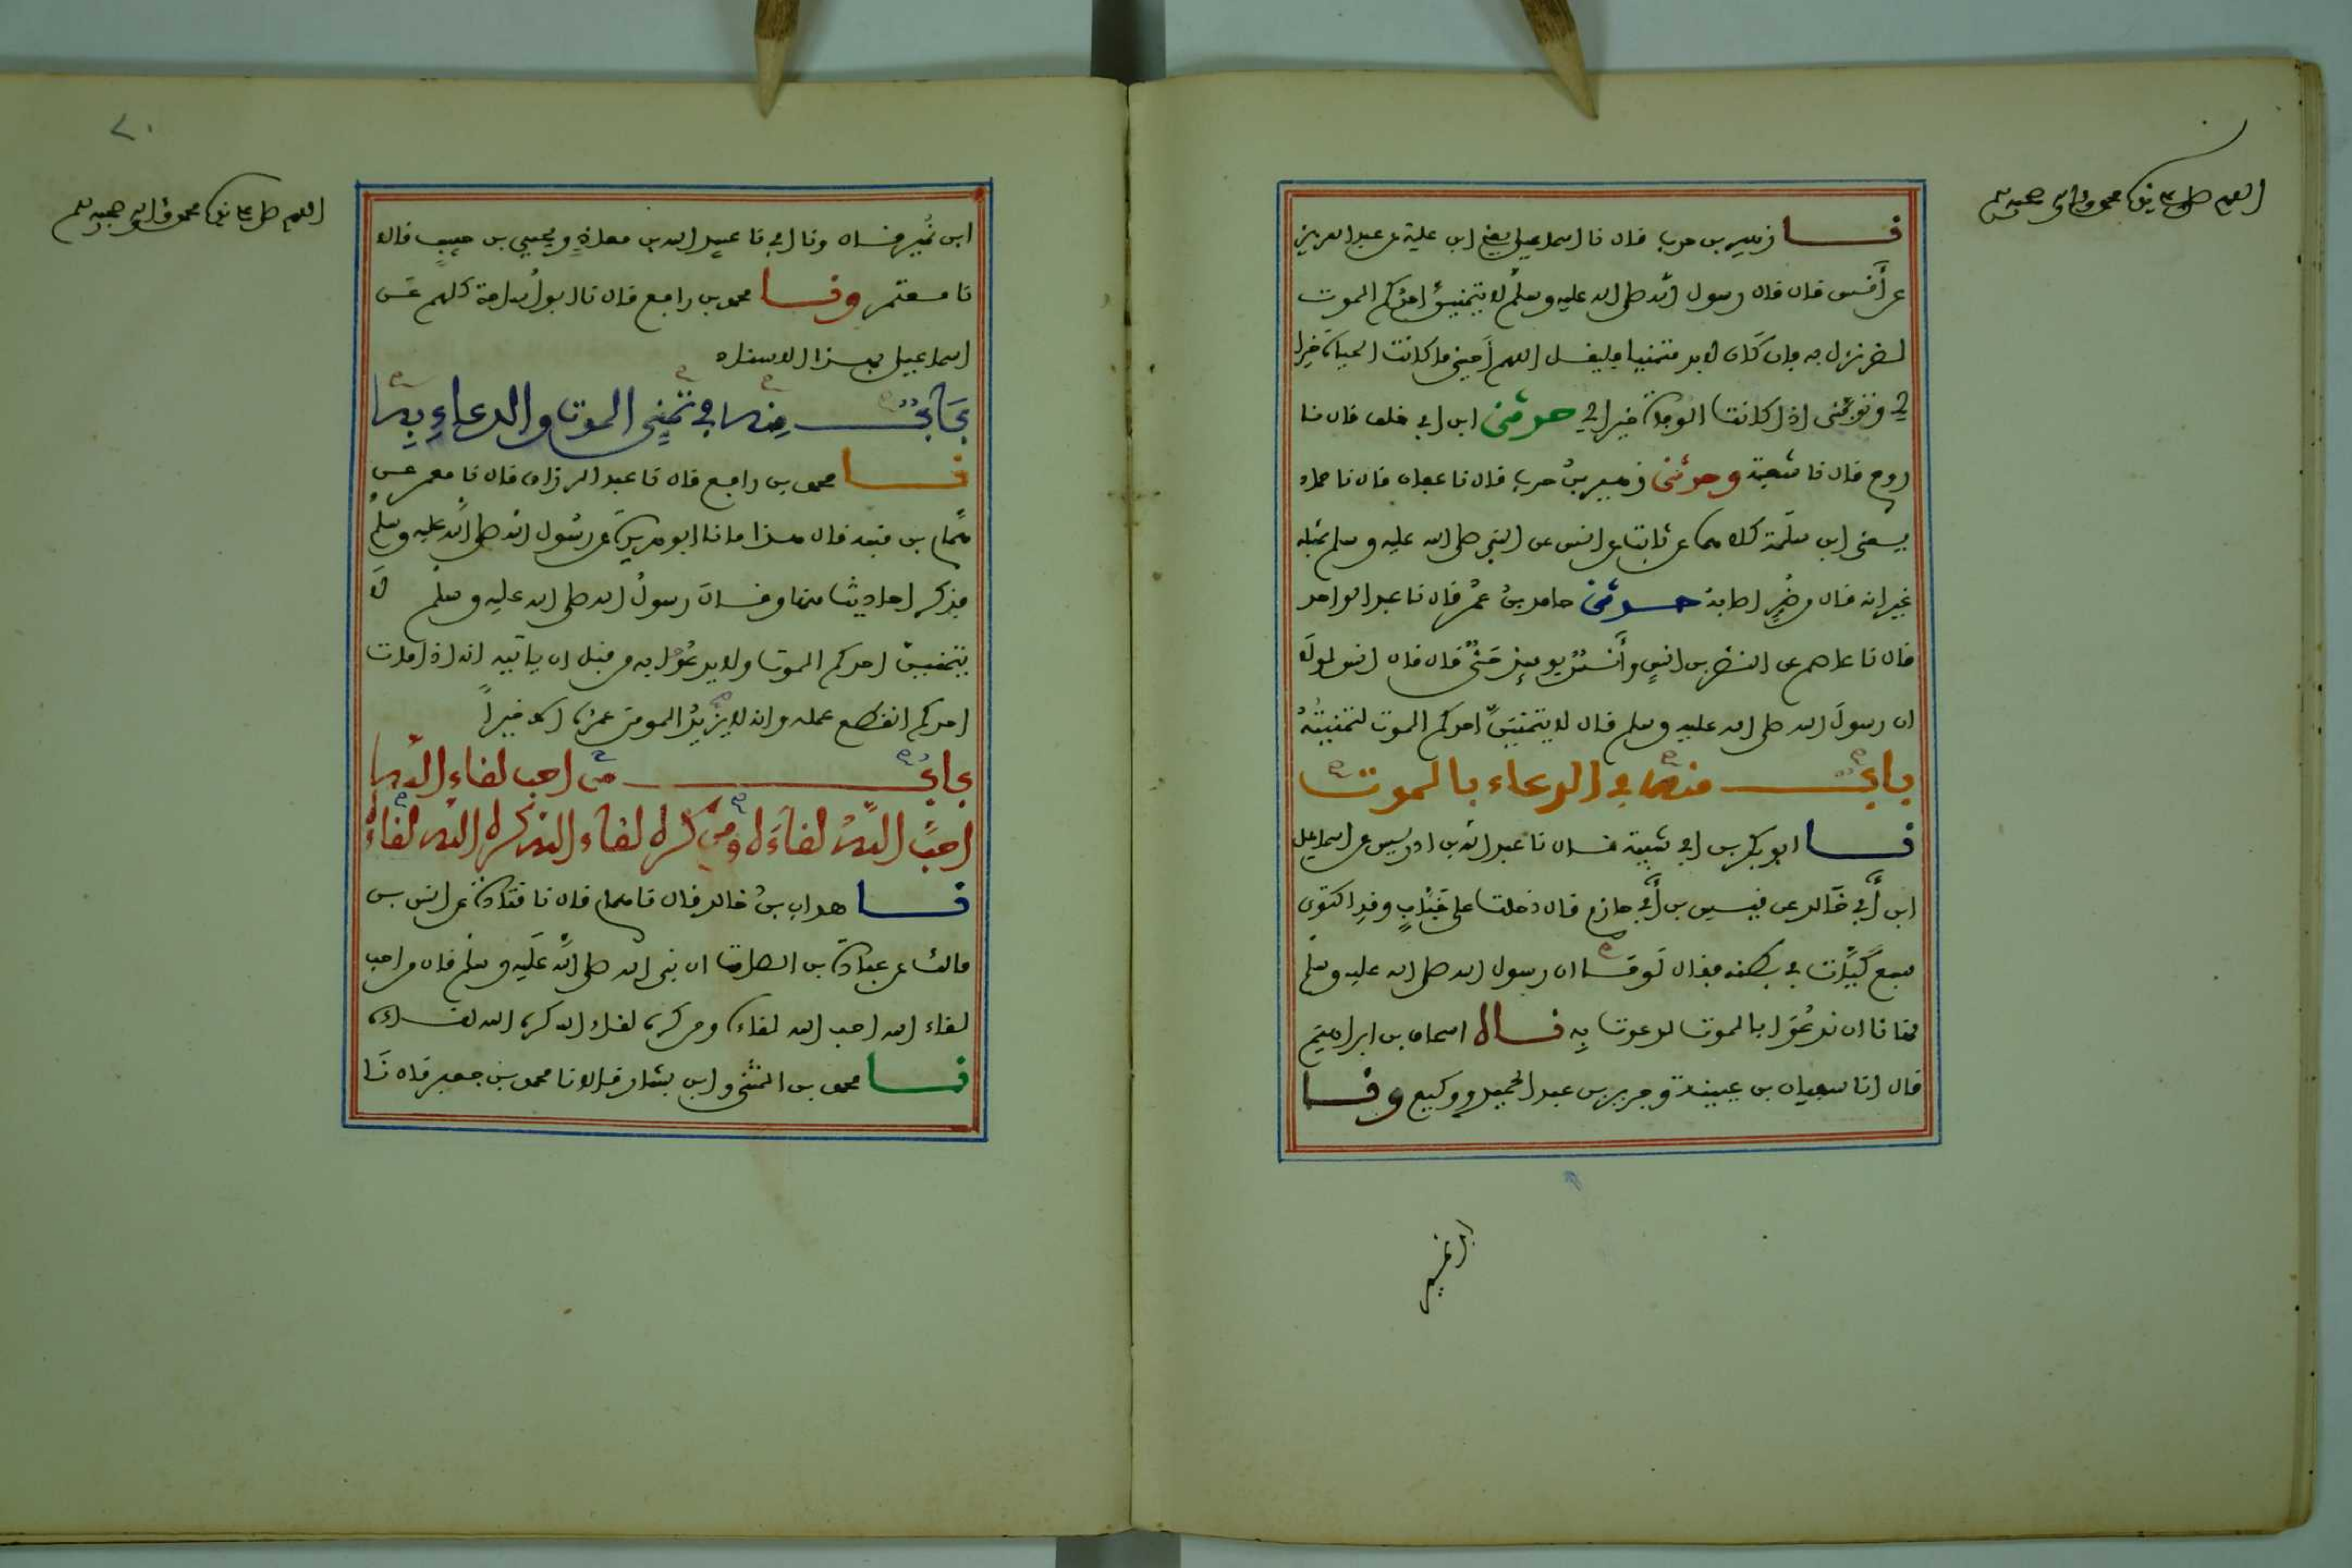 اللهم صل على سيدنا محمد وآله وصحبه وسلم
نا زهير بن حرب قال نا اسماعيل يعني ابن علية عن عبد العزيز
عن أنس قال قال رسول الله صلى الله عليه وسلم لا يتمنين أحدكم الموت
لضر نزل به فإن كان لا بد متمنيا فليقل اللهم أحيني ما كانت الحياة خيرا
لي وتوفني اذا كانت الوفاة خيرا لي حدثني ابن ابي خلف قال نا
روح قال نا شعبة وحدثني زهير بن حرب قال نا عفان قال نا حماد
يعني ابن سلمة كلاهما عن ثابت عن انس عن النبي صلى الله عليه وسلم بمثله
غير انه قال من ضر اصابه حدثني حامد بن عمر قال نا عبد الواحد
قال نا عاصم عن النضر بن انس وأنس يومئذ حي قال قال انس لولا
ان رسول الله صلى الله عليه وسلم قال لا يتمنين احدكم الموت لتمنيته
باب منه في الدعاء بالموت
نا ابو بكر بن ابي شيبة قال نا عبد الله بن ادريس عن اسماعيل
ابن أبي خالد عن قيس بن أبي حازم قال دخلت على خباب وقد اكتوى
سبع كيات في بطنه فقال لو ما ان رسول الله صلى الله عليه وسلم
نهانا ان ندعو بالموت لدعوت به نا اسحاق بن ابراهيم
قال انا سفيان بن عيينة وجرير بن عبد الحميد ووكيع ونا
ابن نمير
اللهم صل على سيدنا محمد وآله وصحبه وسلم
ابن نمير قال ونا ابي نا عبيد الله بن معاذ ويحيى بن حبيب قالا
نا معتمر ونا محمد بن رافع قال نا ابو أسامة كلهم عن
اسماعيل بهذا الاسناد
باب منه في تمني الموت والدعاء به
نا محمد بن رافع قال نا عبد الرزاق قال نا معمر عن
همام بن منبه قال هذا ما نا ابو هريرة عن رسول الله صلى الله عليه وسلم
فذكر احاديث منها وقال رسول الله صلى الله عليه وسلم لا
يتمنين احدكم الموت ولا يدعوا به من قبل ان ياتيه انه اذا مات
احدكم انقطع عمله وانه لا يزيد المومن عمره الا خيرا
باب من احب لقاء الله
احب الله لقاءه ومن كره لقاء الله كره الله لقاءه
نا هداب بن خالد قال نا همام قال نا قتادة عن انس بن
مالك عن عبادة بن الصامت ان نبي الله صلى الله عليه وسلم قال من احب
لقاء الله احب الله لقاءه ومن كره لقاء الله كره الله لقاءه
نا محمد بن المثنى وابن بشار قالا نا محمد بن جعفر قال نا